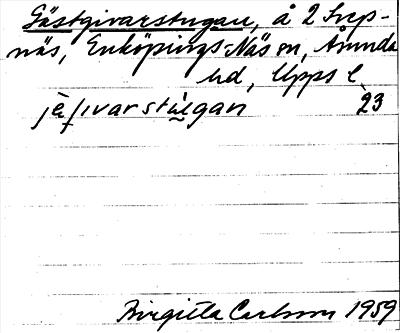 Gästgivarstugan, å 2 Svep-
näs, Enköpings-Näs sn, Åsunda
hd, Upps l
jèʃıvarstùgan 23
Birgitta Carlsson 1959